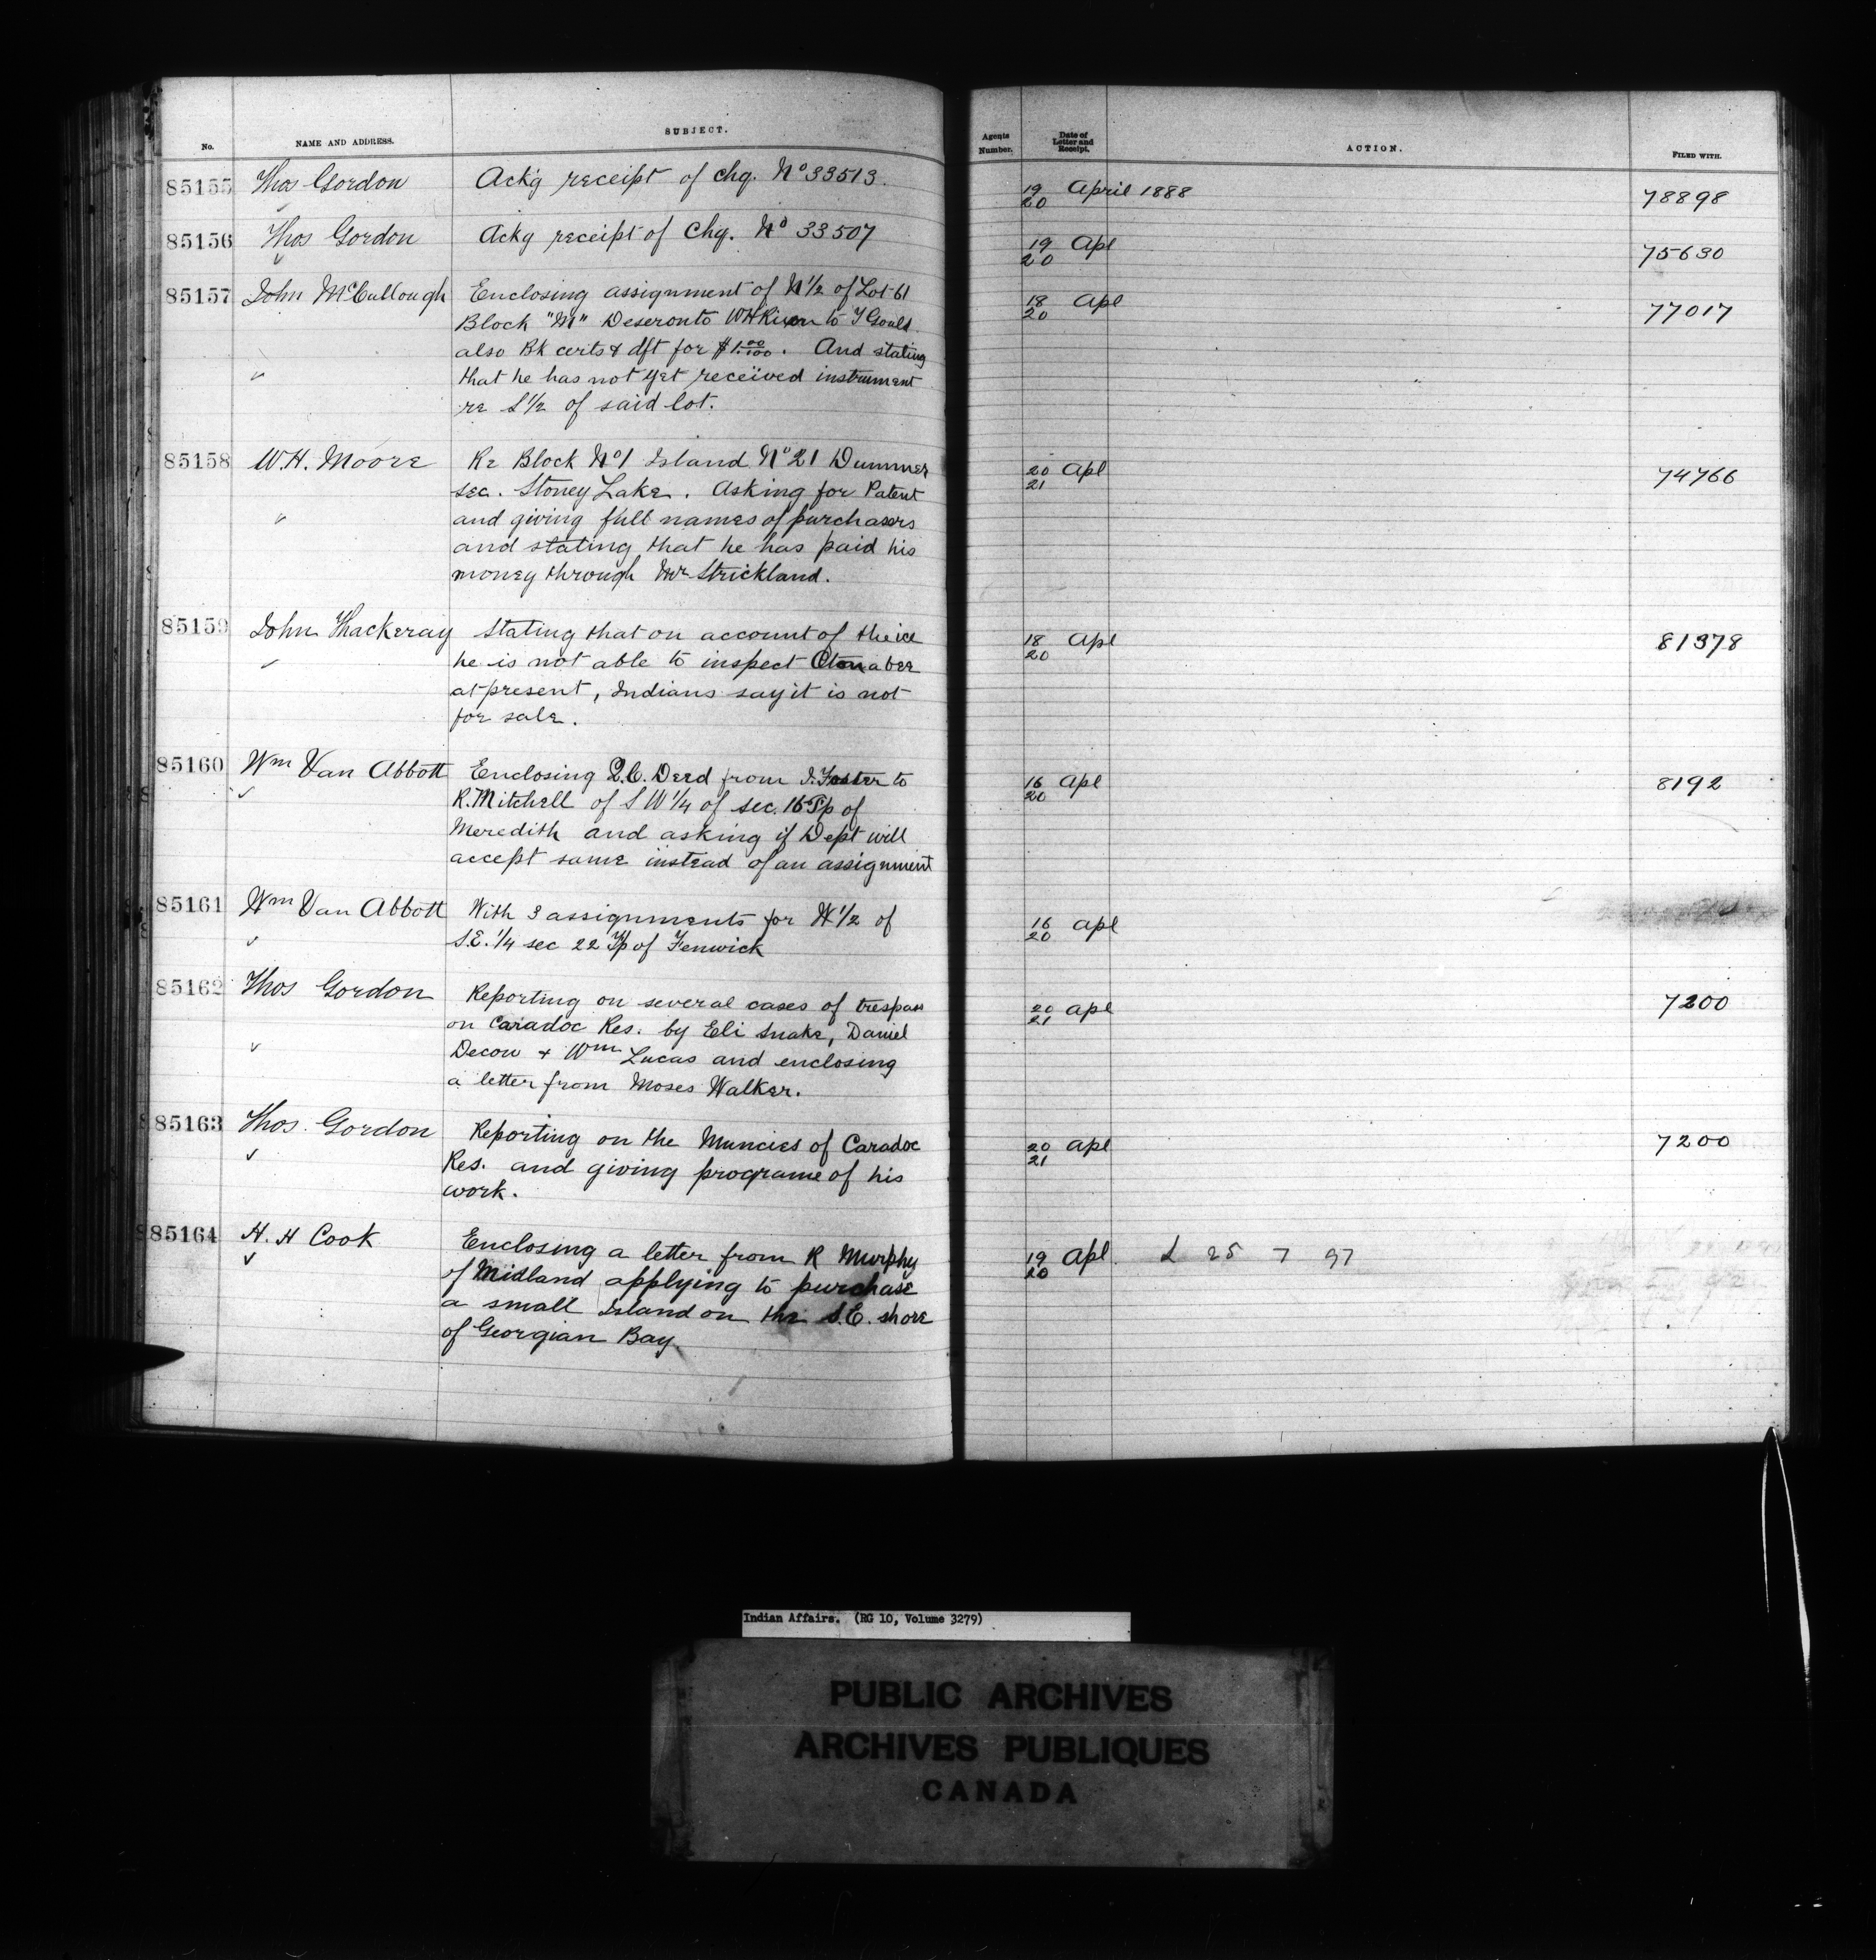 No. NAME AND ADDRESS. SUBJECT. Agents Number. Date of Letter and Receipt. ACTION. FILED WITH.
85155 Thos Gordon Ackg receipt of chq. No 33513. 19/20 April 1888 78898
85156 Thos Gordon Ackg receipt of Chq. No 33507 19/20 Apl 75630
85157 John McCullough Enclosing assignment of N 1/2 of Lot 61 18/20 Apl 77017
Block "M" Deseronto WH to T Gould
also Bk certs & dft for $1.00/100. And stating
that he has not yet received instrument
re S 1/2 of said lot.
85158 W.H. Moore Re Block No 1 Island No 21 Dummer 20/21 Apl 74766
sec. Stoney Lake. Asking for Patent
and giving full names of purchasers
and stating that he has paid his
money through Mr Strickland.
85159 John Thackeray Stating that on account of the ice 18/20 Apl 81378
he is not able to inspect Otonabee
at present, Indians say it is not
for sale.
85160 Wm Van Abbott Enclosing Q.C. Deed from J. Foster to 16/20 Apl 8192
R. Mitchell of S W 1/4 of sec. 16 Tp of
Meredith and asking if Dept will
accept same instead of an assignment
85161 Wm Van Abbott With 3 assignments for W 1/2 of 16/20 Apl
S.E. 1/4 sec 22 Tp of Fenwick
85162 Thos Gordon Reporting on several cases of trespass 20/21 Apl 7200
on Caradoc Res. by Eli Snake, Daniel
Decow & Wm Lucas and enclosing
a letter from Moses Walker.
85163 Thos. Gordon Reporting on the Muncies of Caradoc 20/21 Apl 7200
Res. and giving programe of his
work.
85164 H. H Cook Enclosing a letter from R Murphy 19/20 Apl. L 25 7 97
of Midland applying to purchase
a small Island on the S.E. shore
of Georgian Bay.
Indian Affairs. (RG 10, Volume 3279)
PUBLIC ARCHIVES
ARCHIVES PUBLIQUES
CANADA